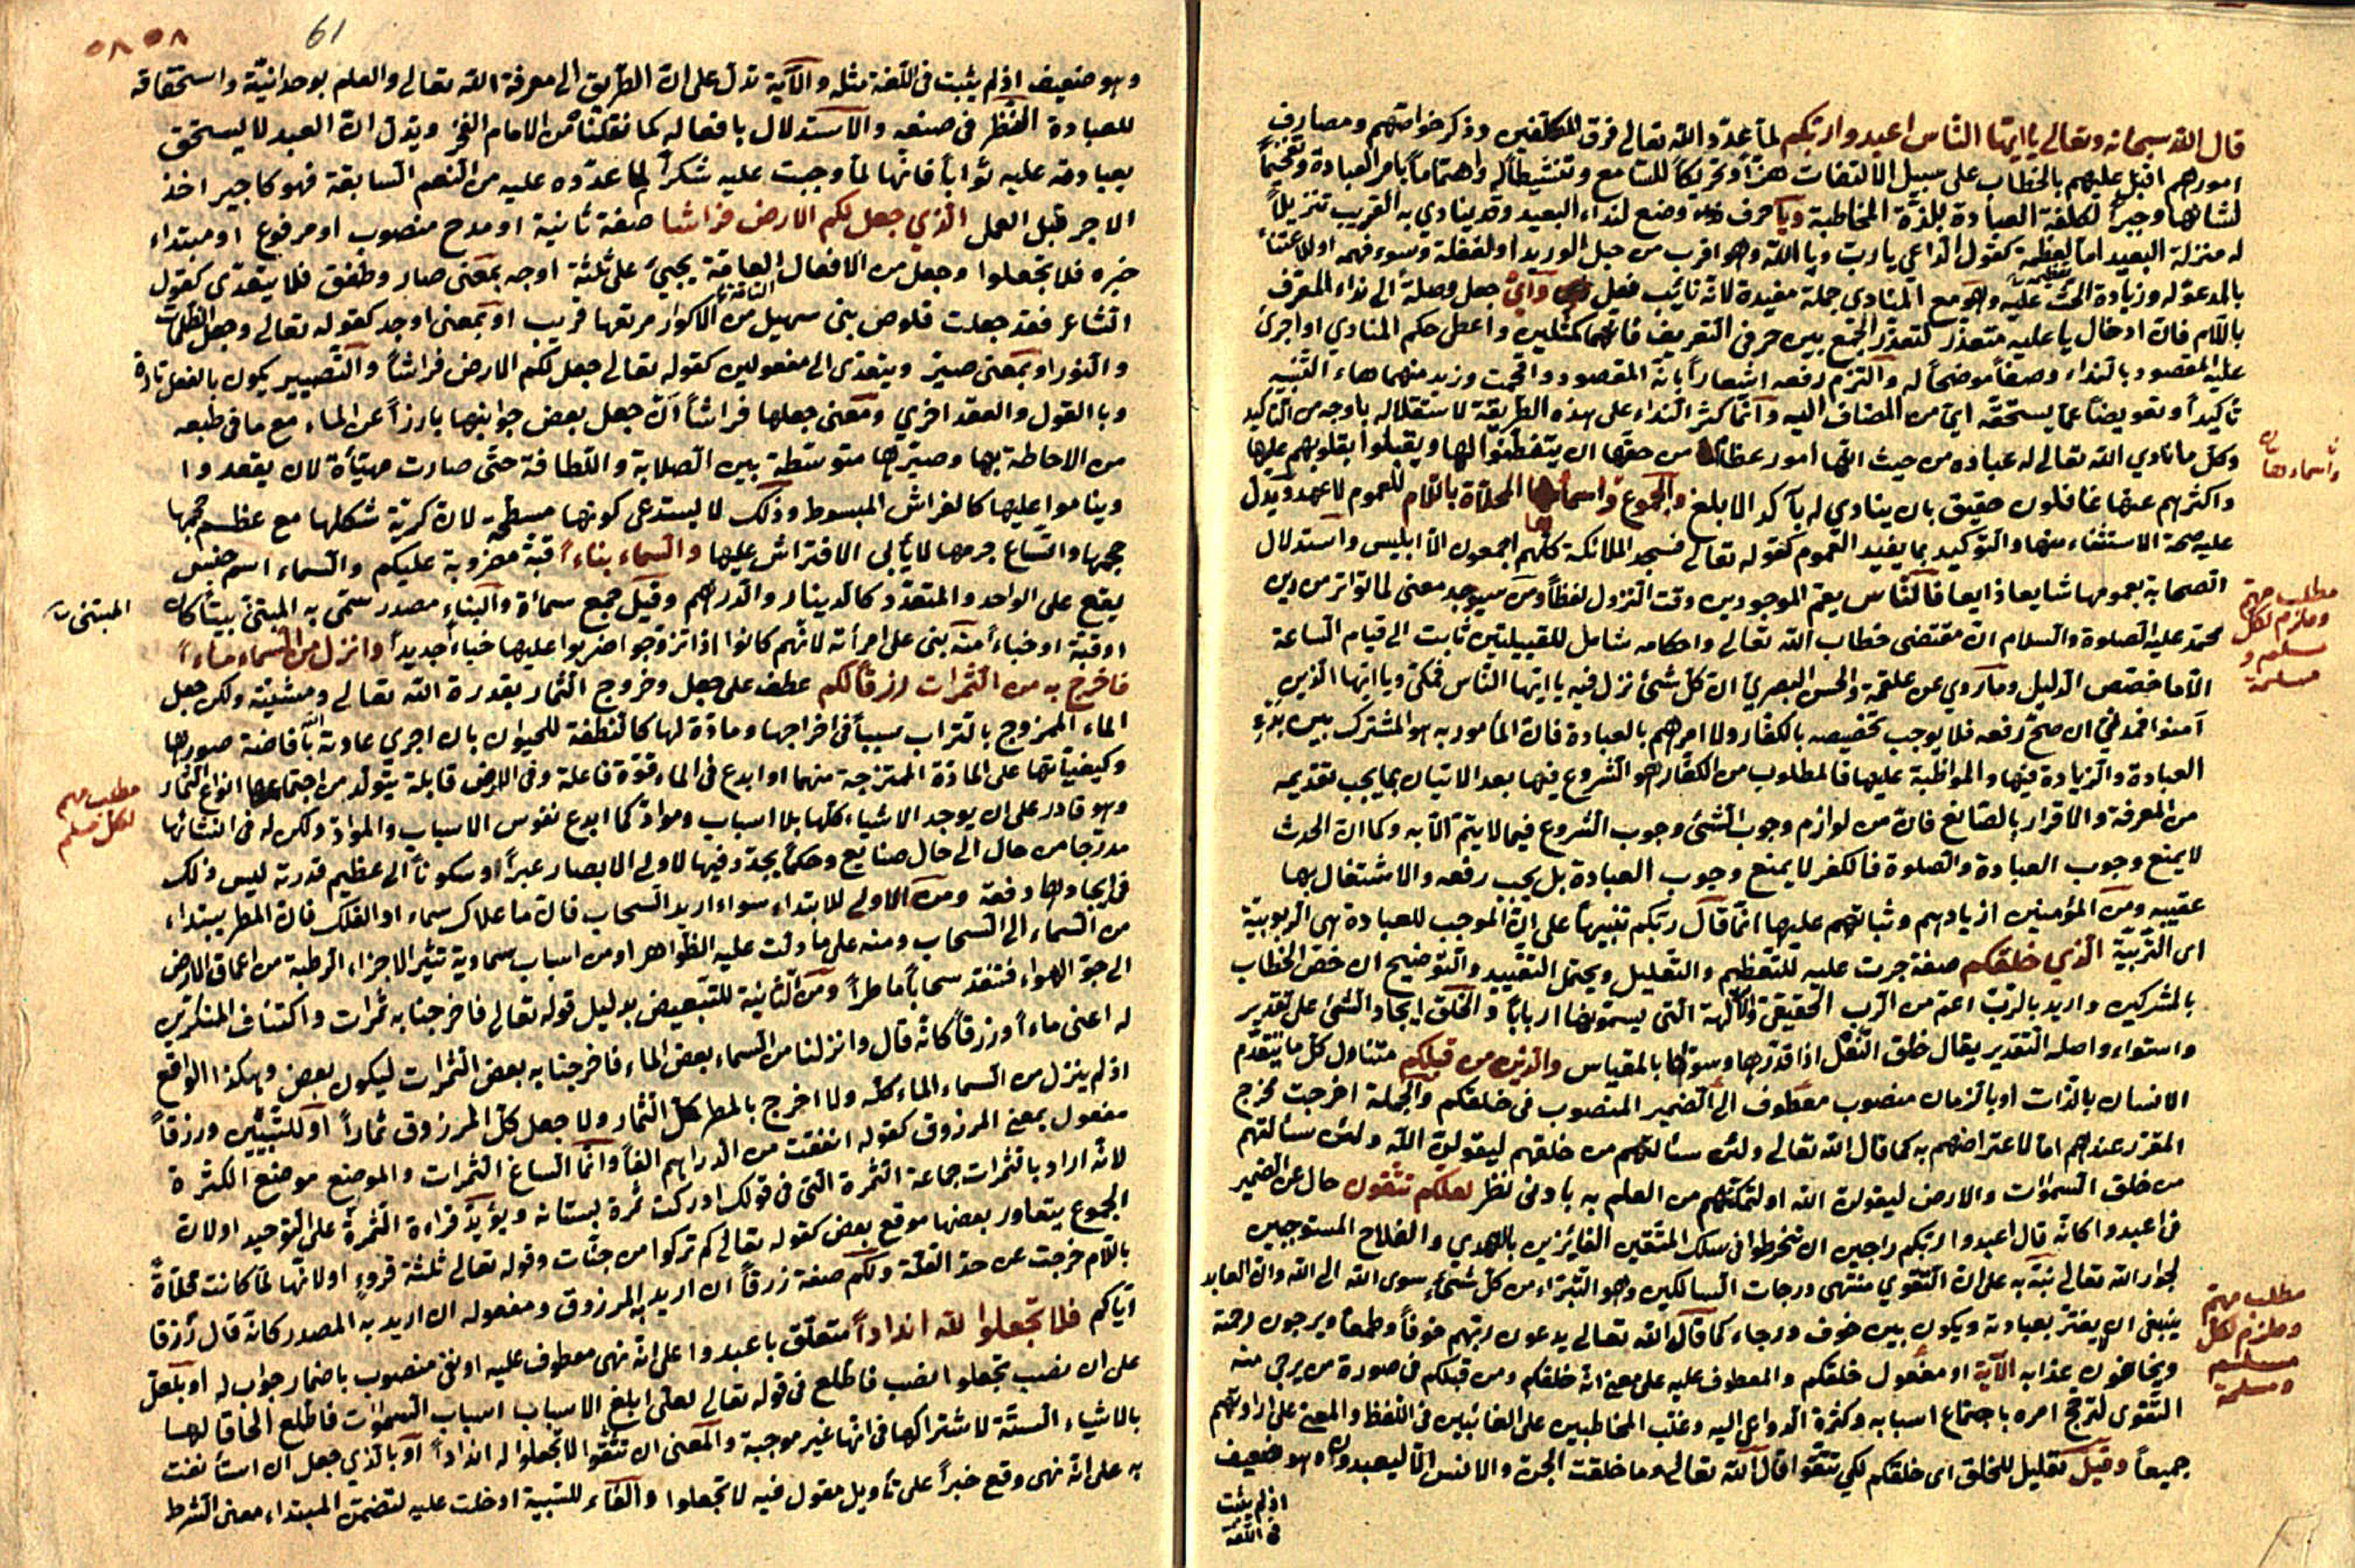 قال الله سبحانه وتعالى يا ايها الناس اعبدوا ربكم لما عدد الله تعالى فرق المكلفين وذكر خواصهم ومصارف
امورهم اقبل عليهم بالخطاب على سبيل الالتفات هزا وتحريكا للسامع وتنشيطا له واهتماما بامر العبادة وتفخيما
لشانها وجبرا لكلفة العبادة بلذة المخاطبة ويا حرف وضع لنداء البعيد وقد ينادي به القريب تنزيلا
له منزلة البعيد اما لعظمة كقول الداعي يا رب ويا الله وهو اقرب من حبل الوريد او لغفلة وسوء فهمه او للاعتناء
بالمدعو له وزيادة الحث عليه وهو مع المنادي جملة مفيدة لانه نائب فعل واي جعل وصلة الى نداء المعرف
باللام فان ادخال يا عليه متعذر لتعذر الجمع بين حرفي التعريف فانهما كمثلين واعطى حكم المنادي او اجرى
عليه المقصود بالنداء وصفا موضحا له والتزم رفعه اشعارا بانه المقصود واقحمت وزيد منهما هاء التنبيه
تاكيدا وتعويضا عما يستحقه اي من المضاف اليه وانما كثر النداء على هذه الطريقة لاستقلاله باوجه من التاكيد
وكل ما نادي الله تعالى له عباده من حيث انها امور عظام من حقها ان يتفطنوا لها ويقبلوا بقلوبهم عليها
واكثرهم عنها غافلون حقيق بان ينادي له بآكد الابلغ والجموع واسماءها المحلاة باللام للعموم لا عهد ويدل
عليه صحة الاستثناء منها والتوكيد بما يفيد العموم كقوله تعالى فسجد الملائكة كلهم اجمعون الا ابليس واستدلال
الصحابة بعمومها شايعا ذايعا فالناس يعم الموجودين وقت النزول لفظا ومن سيوجد معنى لما تواتر من دين
محمد عليه الصلوة والسلام ان مقتضى خطاب الله تعالى واحكامه شامل للقبيلتين ثابت الى قيام الساعة
الا ما خصص الدليل وما روي عن علقمة والحسن البصري ان كل شئ نزل فيه يا ايها الناس فمكي ويا ايها الذين
آمنوا فمدني ان صح رفعه فلا يوجب تخصيصه بالكفار ولا امرهم بالعبادة فان المأمور به هو المشترك بين بدء
العبادة والزيادة فيها والمواظبة عليها فالمطلوب من الكفار هو الشروع فيها بعد الاتيان بما يجب تقديمه
من المعرفة والاقرار بالصانع فان من لوازم وجوب الشئ وجوب الشروع فيما لا يتم الا به وكما ان الحدث
لا يمنع وجوب العبادة والصلوة فالكفر لا يمنع وجوب العبادة بل يجب رفعه والاشتغال بها
عقيبه ومن المؤمنين ازيادهم وثباتهم عليها انما قال ربكم تنبيها على ان الموجب للعبادة هي الربوبية
اى التربية الذي خلقكم صفة جرت عليه للتعظيم والتعليل ويحتمل التقييد والتوضيح ان خص الخطاب
بالمشركين واريد بالرب اعم من الرب الحقيقي والآلهة التي يسمونها اربابا والخلق ايجاد الشئ على تقدير
واستواء واصله التقدير يقال خلق النعل اذا قدرها وسواها بالمقياس والذين من قبلكم متناول كل ما يتقدم
الانسان بالذات او بالزمان منصوب معطوف الى الضمير المنصوب في خلقكم والجملة اخرجت مخرج
المقرر عندهم اما لاعترافهم به كما قال الله تعالى ولئن سئالتهم من خلقهم ليقولن الله ولئن سئالتهم
من خلق السموات والارض ليقولن الله او لتمكنهم من العلم به بادنى نظر لعلكم تتقون حال عن الضمير
في اعبدوا كانه قال اعبدوا ربكم راجين ان تنخرطوا في سلك المتقين الفايزين بالهدي والفلاح المستوجبين
لجوار الله تعالى نبه به على ان التقوي منتهى درجات السالكين وهو التبراء من كل شئ سوى الله الى الله وان العابد
ينبغى ان لا يغتر بعبادته ويكون بين خوف ورجاء كما قال الله تعالى يدعون ربهم خوفا وطمعا ويرجون رحمته
ويخافون عذابه الآية او مفعول خلقكم والمعطوف عليه على معنى انه خلقكم ومن قبلكم في صورة من يرجى منه
التقوى لترجح امره باجتماع اسبابه وكثرة الدواعى اليه وغلب المخاطبين على الغائبين في اللفظ والمعنى على ارادتهم
جميعا وقيل تعليل للخلق اى خلقكم لكي تتقوا قال الله تعالى وما خلقت الجن والانس الا ليعبدون وهو ضعيف
اذ لم يثبت
في اللغة
واسماءها
مطلب مهم
وملزم لكل
مسلم و
مسلمة
مطلب مهم
وملزم لكل
مسلم
ومسلمة
61
٥٨ ٥٨
وهو ضعيف اذ لم يثبت في اللغة مثله والآية تدل على ان الطريق الى معرفة الله تعالى والعلم بوحدانيته واستحقاقه
للعبادة النظر في صنعه والاستدلال بافعاله كما نقلنا من الامام الفخر ويدل ان العبد لا يستحق
بعبادته عليه ثوابا فانها لما وجبت عليه شكرا لما عدده عليه من النعم السابقة فهو كاجير اخذ
الاجر قبل العمل الذي جعل لكم الارض فراشا صفة ثانية او مدح منصوب او مرفوع او مبتداء
خبره فلا تجعلوا وجعل من الافعال العامة يجيئ على ثلثة اوجه بمعنى صار وطفق فلا يتعدى كقول
الشاعر فقد جعلت قلوص بني سهيل من الاكوار مرتعها قريب او بمعنى اوجد كقوله تعالى وجعل الظلمات
والنور او بمعنى صير ويتعدى الى مفعولين كقوله تعالى جعل لكم الارض فراشا والتصيير يكون بالفعل تارة
وبالقول والعقد اخري ومعنى جعلها فراشا ان جعل بعض جوانبها بارزا عن الماء مع ما في طبعه
من الاحاطة بها وصيرها متوسطة بين الصلابة واللطافة حتى صارت مهيأة لان يقعدوا
ويناموا عليها كالفراش المبسوط وذلك لا يستدعى كونها مسطحة لان كرية شكلها مع عظم حجمها
حجمها واتساع جرمها لا يأبى الافتراش عليها والسماء بناءا قبة مضروبة عليكم والسماء اسم جنس
يقع على الواحد والمتعدد كالدينار والدرهم وقيل جمع سماءة والبناء مصدر سمى به المبتنى بيتا كان
او قبة او خباءا منه بنى على امرأته لانهم كانوا اذا تزوجوا ضربوا عليها خباءا جديدا وانزل من السماء ماءا
فاخرج به من الثمرات رزقا لكم عطف على جعل وخروج الثمار بقدرة الله تعالى ومشيته ولكن جعل
الماء الممزوج بالتراب سببا في اخراجها ومادة لها كالنطفة للحيوان بان اجري عادته بافاضة صورها
وكيفياتها على المادة الممتزجة منهما او ابدع في الماء قوة فاعلة وفي الارض قابلة يتولد من اجتماعهما انواع الثمار
وهو قادر على ان يوجد الاشياء كلها بلا اسباب ومواد كما ابدع نفوس الاسباب والمواد ولكن له في انشائها
مدرجا من حال الى حال صنايع وحكما يجدد فيها لاولى الابصار عبرا او سكونا الى عظيم قدرته ليس ذلك
في ايجادها دفعة ومن الاولى للابتداء سواء اريد السحاب فان ما علاك سماء او الفلك فان المطر يبتداء
من السماء الى السحاب ومنه على ما دلت عليه الظواهر او من اسباب سماوية تثير الاجزاء الرطبة من اعماق الارض
الى جو الهواء فتنعقد سحابا ماطرا ومن الثانية للتبعيض بدليل قوله تعالى فاخرجنا به ثمرات واكتناف المنكرين
له اعنى ماءا ورزقا كانه قال وانزلنا من السماء بعض الماء فاخرجنا به بعض الثمرات ليكون بعض وهكذا الواقع
اذ لم ينزل من السماء الماء كله ولا اخرج بالمطر كل الثمار ولا جعل كل المرزوق ثمارا او للتبيين ورزقا
مفعول بمعنى المرزوق كقوله انفقت من الدراهم الفا وانما الساغ الثمرات والموضع موضع الكثرة
لانه اراد بالثمرات جماعة الثمرة التي في قولك ادركت ثمرة بستانه ويؤيد قراءة الثمرة على التوحيد او لان
الجموع يتعاور بعضها موقع بعض كقوله تعالى كم تركوا من جنات وقوله تعالى ثلثة قروء او لانها لما كانت محلاة
باللام خرجت عن حد القلة ولكم صفة رزقا ان اريد به المرزوق ومفعوله ان اريد به المصدر كانه قال رزقا
اياكم فلا تجعلوا لله اندادا متعلق باعبدوا على انه نهى معطوف عليه او نفى منصوب باضمار جواب له او بلعل
على ان نصب تجعلوا نصب فاطلع في قوله تعالى لعلى ابلغ الاسباب اسباب السموات فاطلع الحاقا لها
بالاشياء الستة لاشتراكها في انها غير موجبة والمعنى ان تتقوا لا تجعلوا له اندادا او بالذي جعل ان استأنفت
به على انه نهى وقع خبرا على تأويل مقول فيه لا تجعلوا والفاء للسببية ادخلت عليه لتضمن المبتداء معنى الشرط
المبتنى
مطلب مهم
لكل مسلم